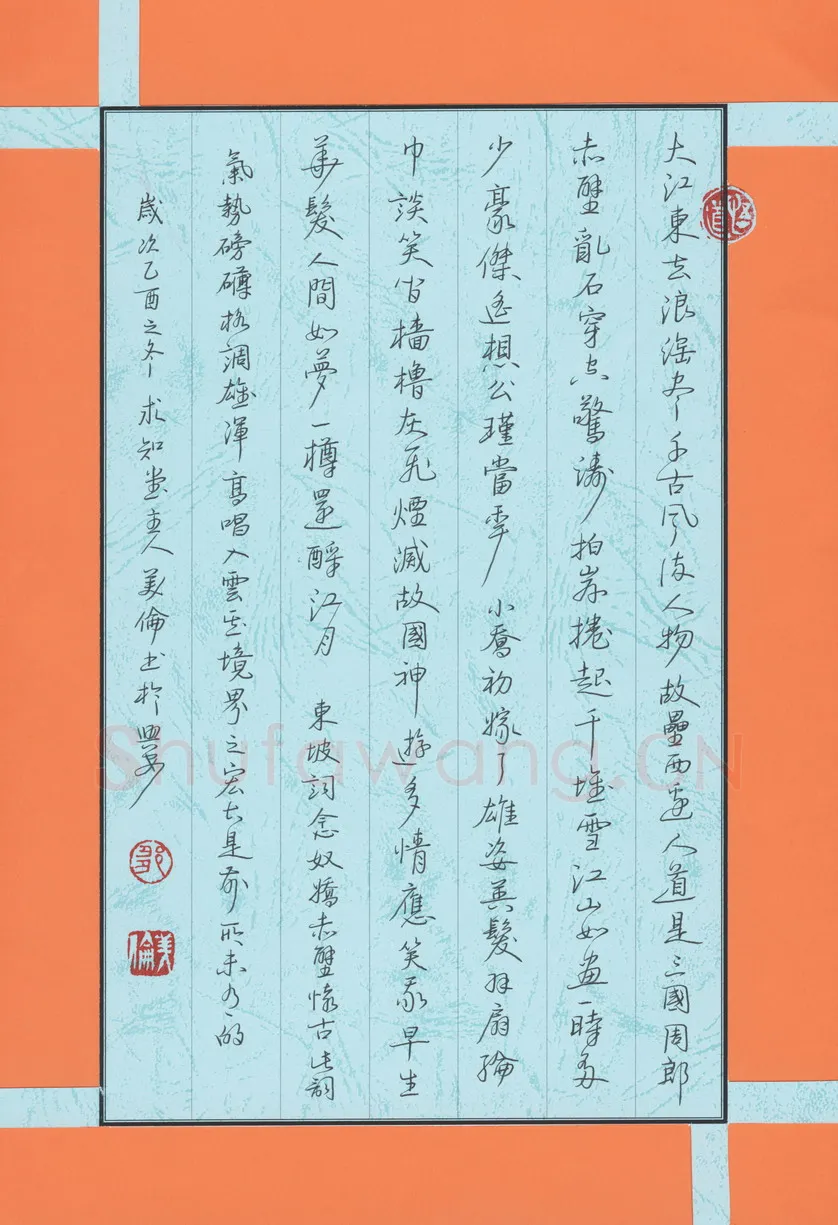 大江東去浪淘盡千古風流人物故壘西邊人道是三國周郎
赤壁亂石穿空驚濤拍岸捲起千堆雪江山如畫一時多
少豪傑遙想公瑾當年小喬初嫁了雄姿英髮羽扇綸
巾談笑間檣櫓灰飛煙滅故國神游多情應笑我早生
華髮人間如夢一樽還酹江月 東坡詞念奴嬌赤壁懷古此詞
氣勢磅礴格調雄渾高唱入雲其境界之宏大是前所未有的
歲次乙酉之冬求知堂主人美倫書於
鄒
美倫
Shufawang.CN